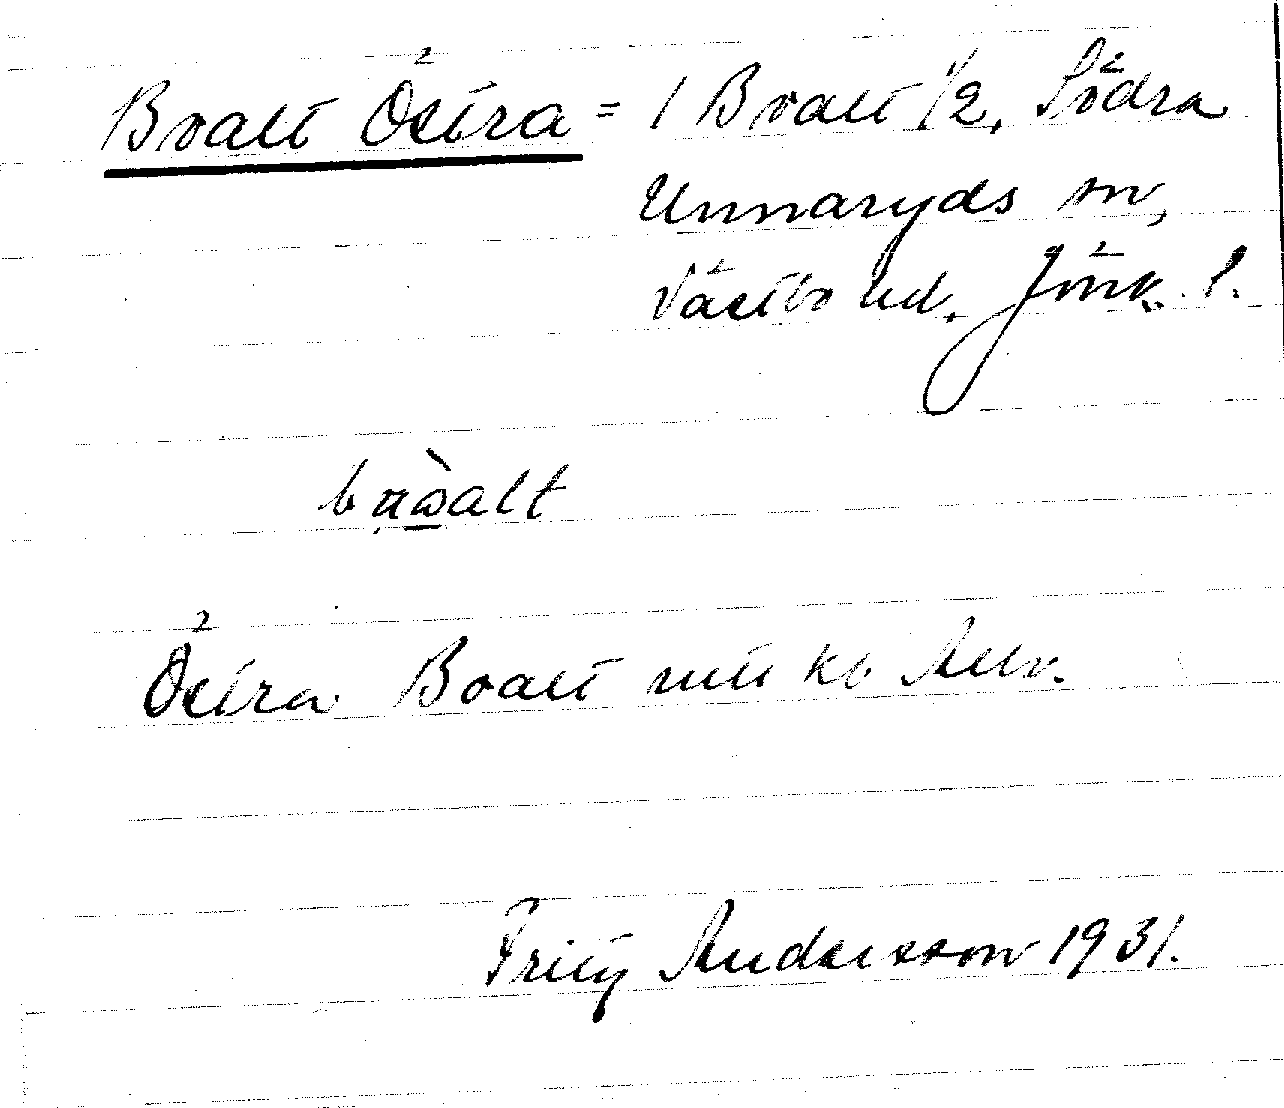 Boalt Östra = 1 Boalt 1/2, Södra
Unnaryds sn,
Västbo hd. Jönk. l.
Östra Boalt
Fritz Andersson 1931.